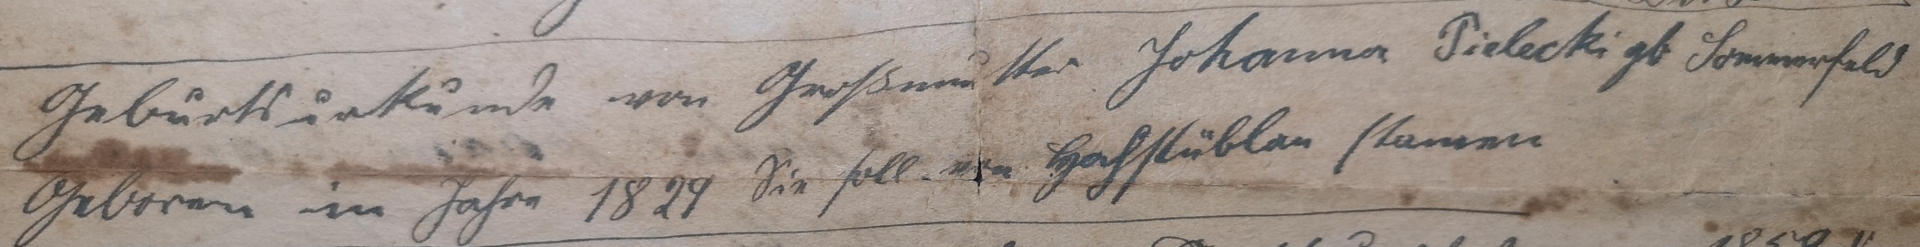 Geburtsurkunde von Großmutter Johanna Pielecki gb Sommerfeld
Geboren im Jahre 1829 Sie soll von Hochstüblau stamen